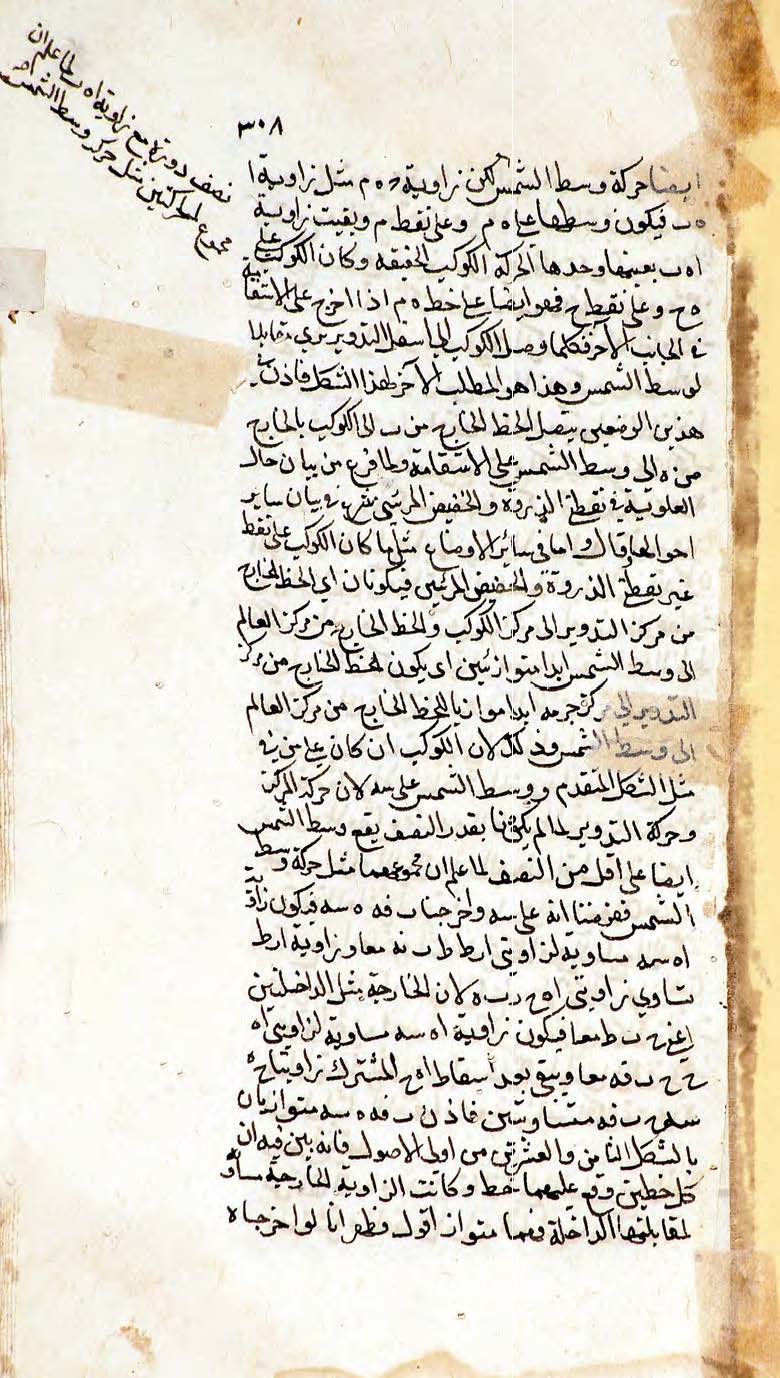 ٣٠٨
نصف دورة مع زاوية ا ه ب لما علم ان
مجموع الحركتين مثل حركة وسط الشمس
ايضا حركة وسط الشمس لكن زاوية ه م مثل زاوية ا
ه ب فيكون وسطها على ه م وعلى نقطة م وبقيت زاوية
ا ه ب بعينها وحدها لحركة الكوكب الحقيقه وكان الكوكب على
ه ح وعلى نقطة ح فهو ايضا على خط ه م اذا اخرج على الاستقامة
في الجانب الآخر فكلما وصل الكوكب الى اسفل التدوير يرى مقابلا
لوسط الشمس وهذا هو المطلب الآخر لهذا الشكل فاذن في
هذين الوضعين يتصل الخط الخارج من ب الى الكوكب بالخارج
من ه الى وسط الشمس على الاستقامة ولما فرغ من بيان حال
العلوية في نقطة الذروة والحضيض المرئي شرع في بيان ساير
احوالها فقال واما في سائر الاوضاع مثل ما كان الكوكب على نقط
غير نقطة الذروة والحضيض المرئيين فيكونان اي الخط الخارج
من مركز التدوير الى مركز الكوكب والخط الخارج من مركز العالم
الى وسط الشمس ابدا متوازيين اى يكون الخط الخارج من مركز
التدوير الى مركز جرمه ابدا موازيا للخط الخارج من مركز العالم
الى وسط الشمس وذلك لان الكوكب ان كان على ف في
مثل الشكل المتقدم ووسط الشمس على سه لان حركة المركز
وحركة التدوير لما لم يكونا بقدر النصف يقع وسط الشمس
ايضا على اقل من النصف لما علم ان مجموعهما مثل حركة وسط
الشمس ففرضنا انه على سه واخرجنا ب فه ه سه فيكون زاوية
ا ه سه مساوية لزاويتى ا ر ط ط ب فه معا وزاوية ا ر ط
تساوي زاويتى ا ه ح ر ب ه لان الخارجة مثل الداخلتين
اعنى ح ب ط معا فيكون زاوية ا ه سه مساوية لزاويتى ا ه
ح ح ب فه معا ويبقى بعد اسقاط ا ه ح المشترك زاويتا ح ه
سه ح ب فه متساويتين فاذن ب فه ه سه متوازيان
بالشكل الثامن والعشرين من اولى الاصول فانه بين فيه ان
كل خطين وقع عليهما خط وكانت الزاوية الخارجة مساوية
لمقابلتها الداخلة فهما متواز اقول فظهر انا لو اخرجنا ه